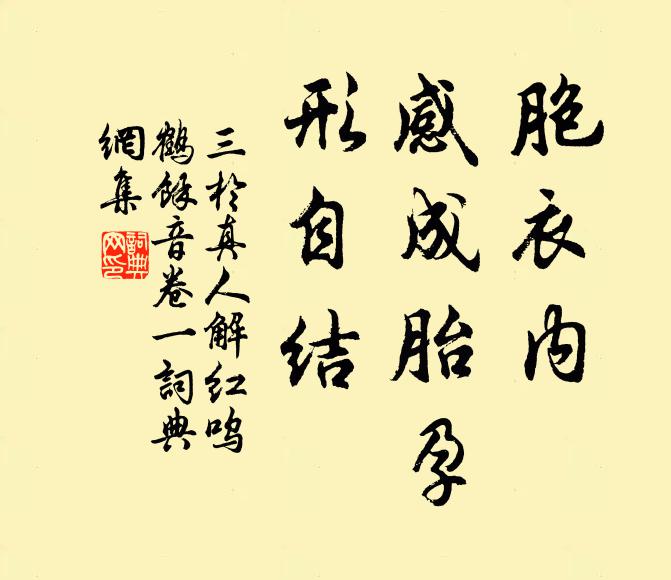 胞衣内
感成胎孕
形自结
三於真人解红鸣
鶴餘音卷一詞典
網集
詞典
网印